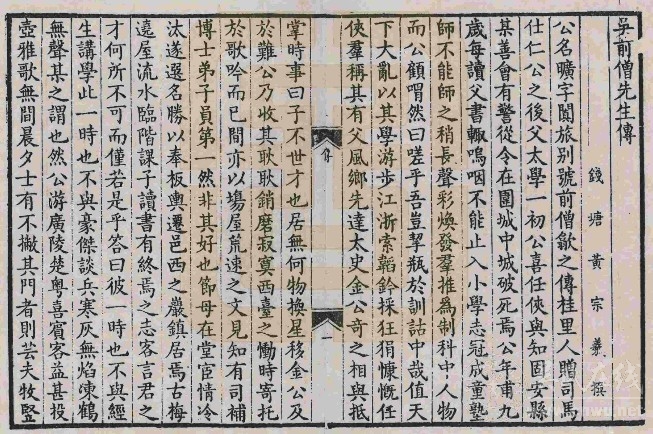 吳前僧先生傳
錢塘黃宗羲撰
公名曠字闐旅别號前僧歙之傳桂里人贈司馬
仕仁公之後父太學一初公喜任俠與知固安縣
某善會有警從令在圍城中城破死焉公年甫九
歲每讀父書輒嗚咽不能止入小學志冠成童塾
師不能師之稍長聲彩煥發羣推為制科中人物
而公顧喟然曰嗟乎吾豈挈瓶於訓詁中哉值天
下大亂以其學游步江浙索韜鈐採狂狷慷慨任
俠羣稱其有父風鄉先達太史金公奇之相與抵
一
掌時事曰子不世才也居無何物換星移金公及
於難公乃收其耿耿銷磨寂寞西臺之慟時寄托
於歌吟而已間亦以場屋荒速之文見知有司補
博士弟子員第一然非其好也節母在堂宦情冷
汰遂選名勝以奉板輿遷邑西之巖鎮居焉古梅
遶屋流水臨階課子讀書有終焉之志客言君之
才何所不可而僅若是乎答曰彼一時也不與經
生講學此一時也不與豪傑談兵寒灰無焰凍鶴
無聲其之謂也然公游廣陵楚粵喜賓客益甚投
壺雅歌無間晨夕士有不撇其門者則芸夫牧豎